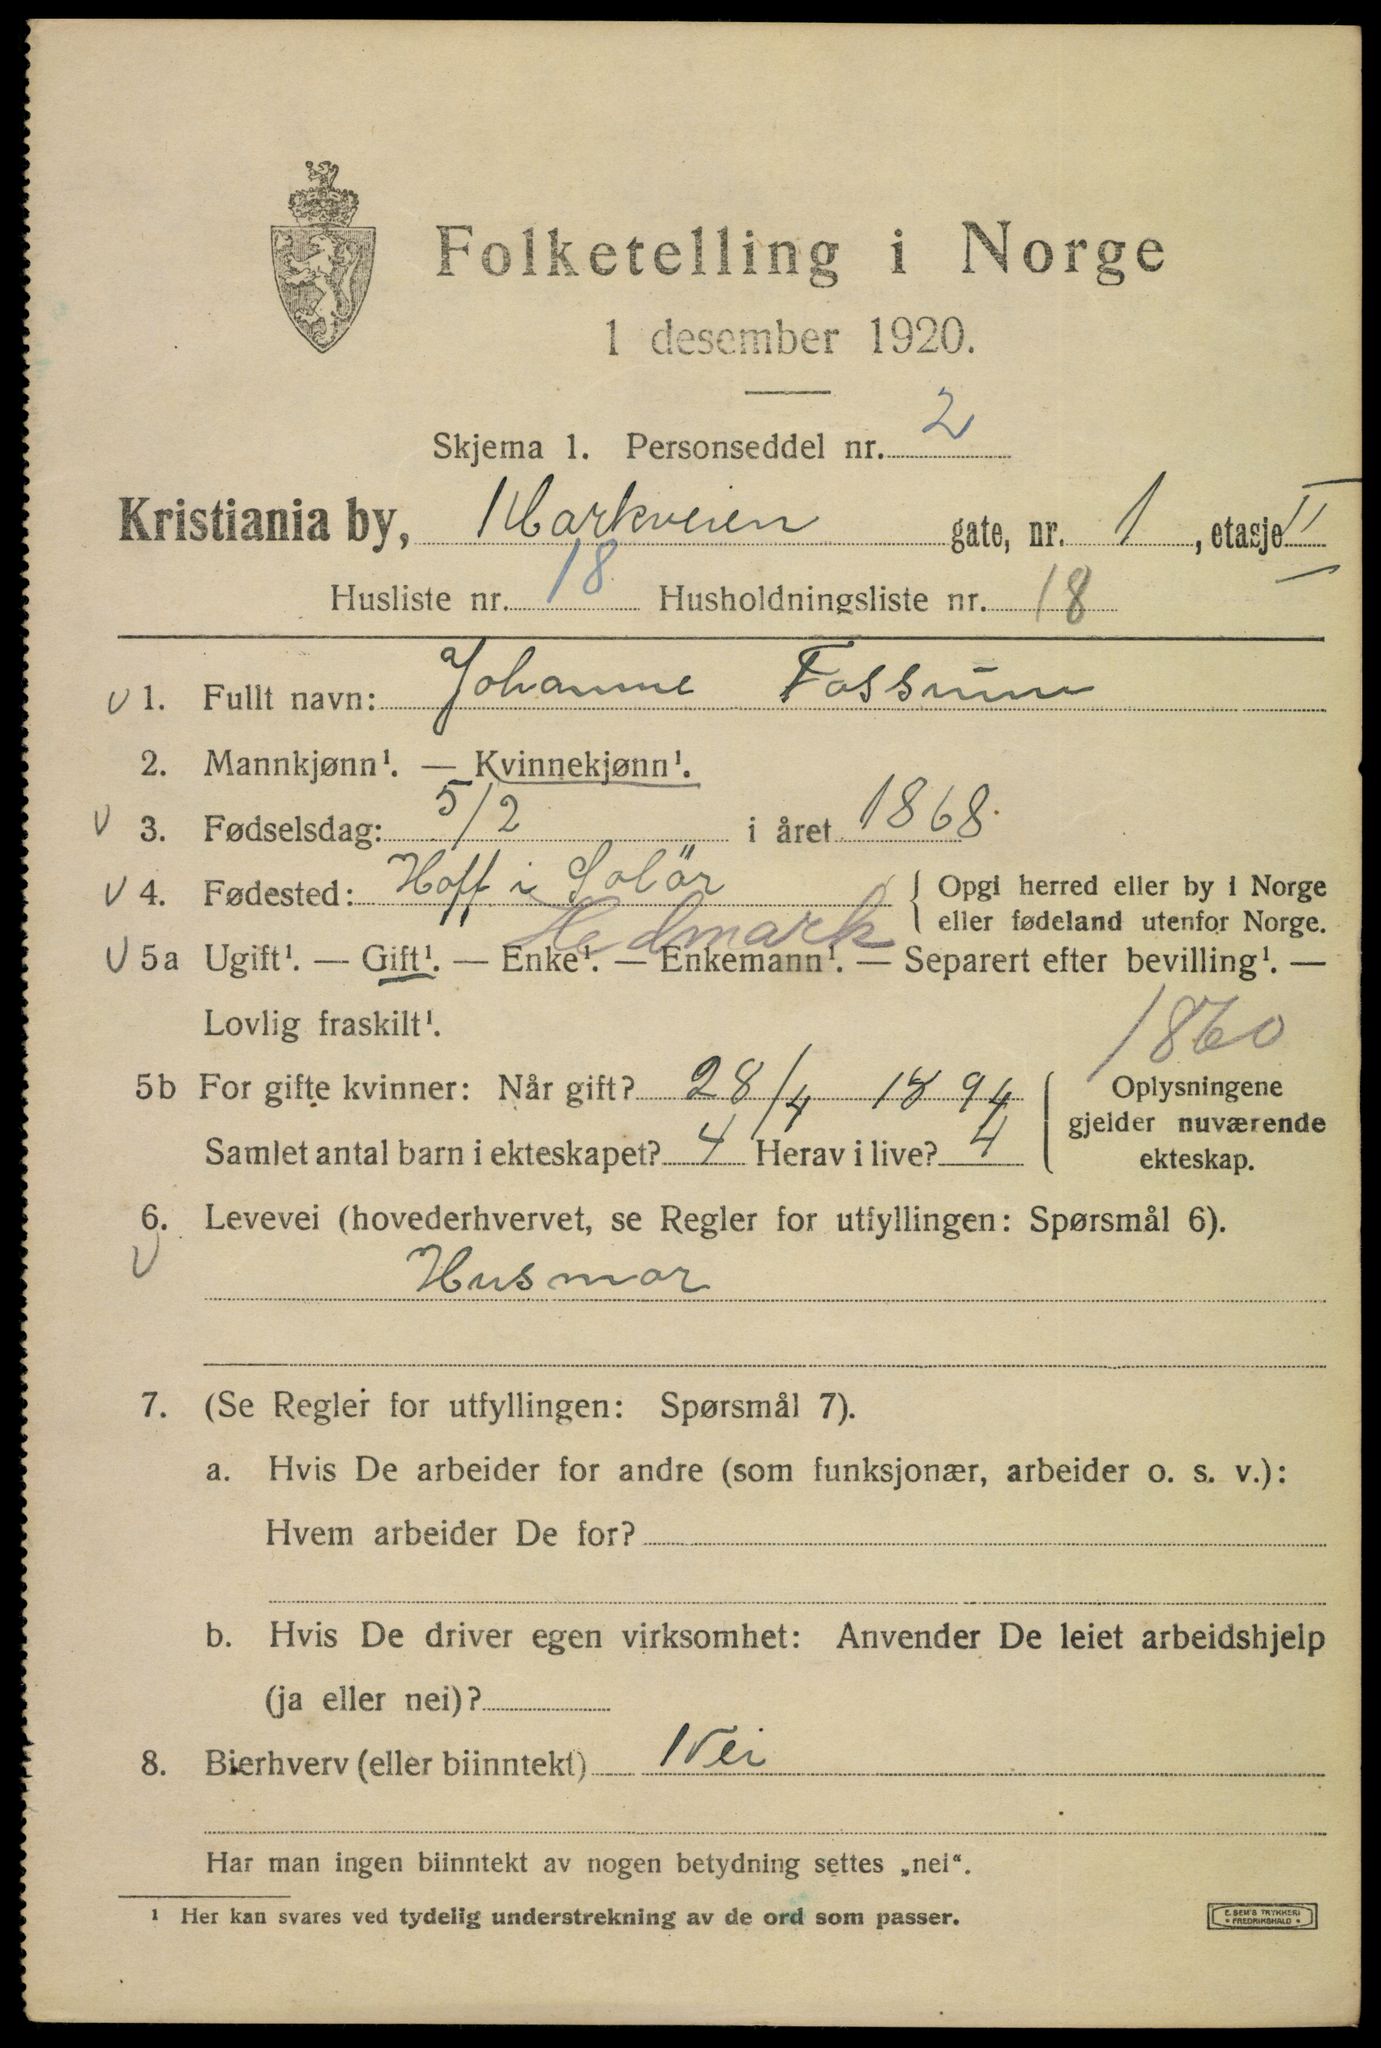 Folketelling i Norge
1 desember 1920.
Skjema 1. Personseddel nr. 2
Kristiania by, Markveien gate, nr. 1, etasje II
Husliste nr. 18 Husholdningsliste nr. 18
V 1. Fullt navn: Johanne Fossum
2. Mannkjønn¹. — Kvinnekjønn¹.
V 3. Fødselsdag: 5/2 i året 1868.
V 4. Fødested: Hoff i Solör { Opgi herred eller by i Norge
eller fødeland utenfor Norge.
Hedmark
V 5a Ugift¹. — Gift¹. — Enke¹. — Enkemann¹. — Separert efter bevilling¹. —
Lovlig fraskilt¹.
1860
5b For gifte kvinner: Når gift? 28/4 1894 { Oplysningene
gjelder nuværende
Samlet antal barn i ekteskapet? 4 Herav i live? 4
ekteskap.
6. Levevei (hovederhvervet, se Regler for utfyllingen: Spørsmål 6).
V Husmor
7. (Se Regler for utfyllingen: Spørsmål 7).
a. Hvis De arbeider for andre (som funksjonær, arbeider o. s. v.):
Hvem arbeider De for?
b. Hvis De driver egen virksomhet: Anvender De leiet arbeidshjelp
(ja eller nei)?
8. Bierhverv (eller biinntekt) Nei
Har man ingen biinntekt av nogen betydning settes „nei“.
¹ Her kan svares ved tydelig understrekning av de ord som passer.
E. SEM'S TRYKKERI
• FREDRIKSHALD •